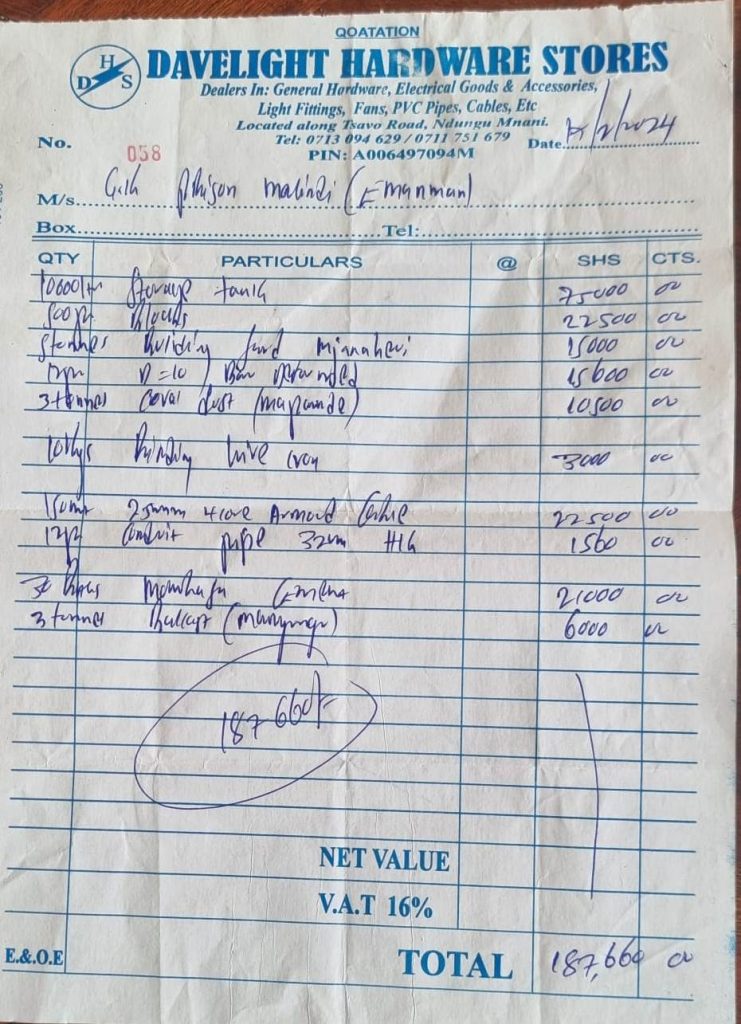 QOATATION
DHS
DAVELIGHT HARDWARE STORES
Dealers In: General Hardware, Electrical Goods & Accessories,
Light Fittings, Fans, PVC Pipes, Cables, Etc
Located along Tsavo Road, Ndungu Mnani.
Tel: 0713 094 629 / 0711 751 679
No. 058
PIN: A006497094M
Date. /2/2024
M/s. G.K prison malindi (
Box. Tel:
QTY PARTICULARS @ SHS CTS.
10000ltr Storage tank 75000 00
500 Blocks 22500 00
Building 15000 00
D=10 Bar 15600 00
3 tonnes Coral dust 10500 00
10kgs Binding wire 3000 00
150mt 25mm 4 core Armoured Cable 22500 00
12p Conduit pipe 32mm HG 1560 00
30 bags 21000 00
3 tonnes Ballast 6000 00
187 660/-
NET VALUE
V.A.T 16%
E.&.O.E TOTAL 187,660 00